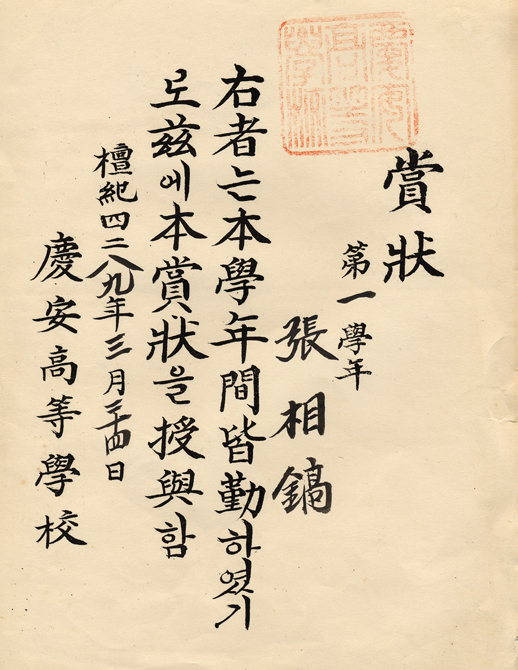 慶安
高等
學校
賞狀
第一學年
張相鎬
右者는本學年間皆勤하였기
로玆에本賞狀을授與함
檀紀四二八九年三月二十四日
慶安高等學校